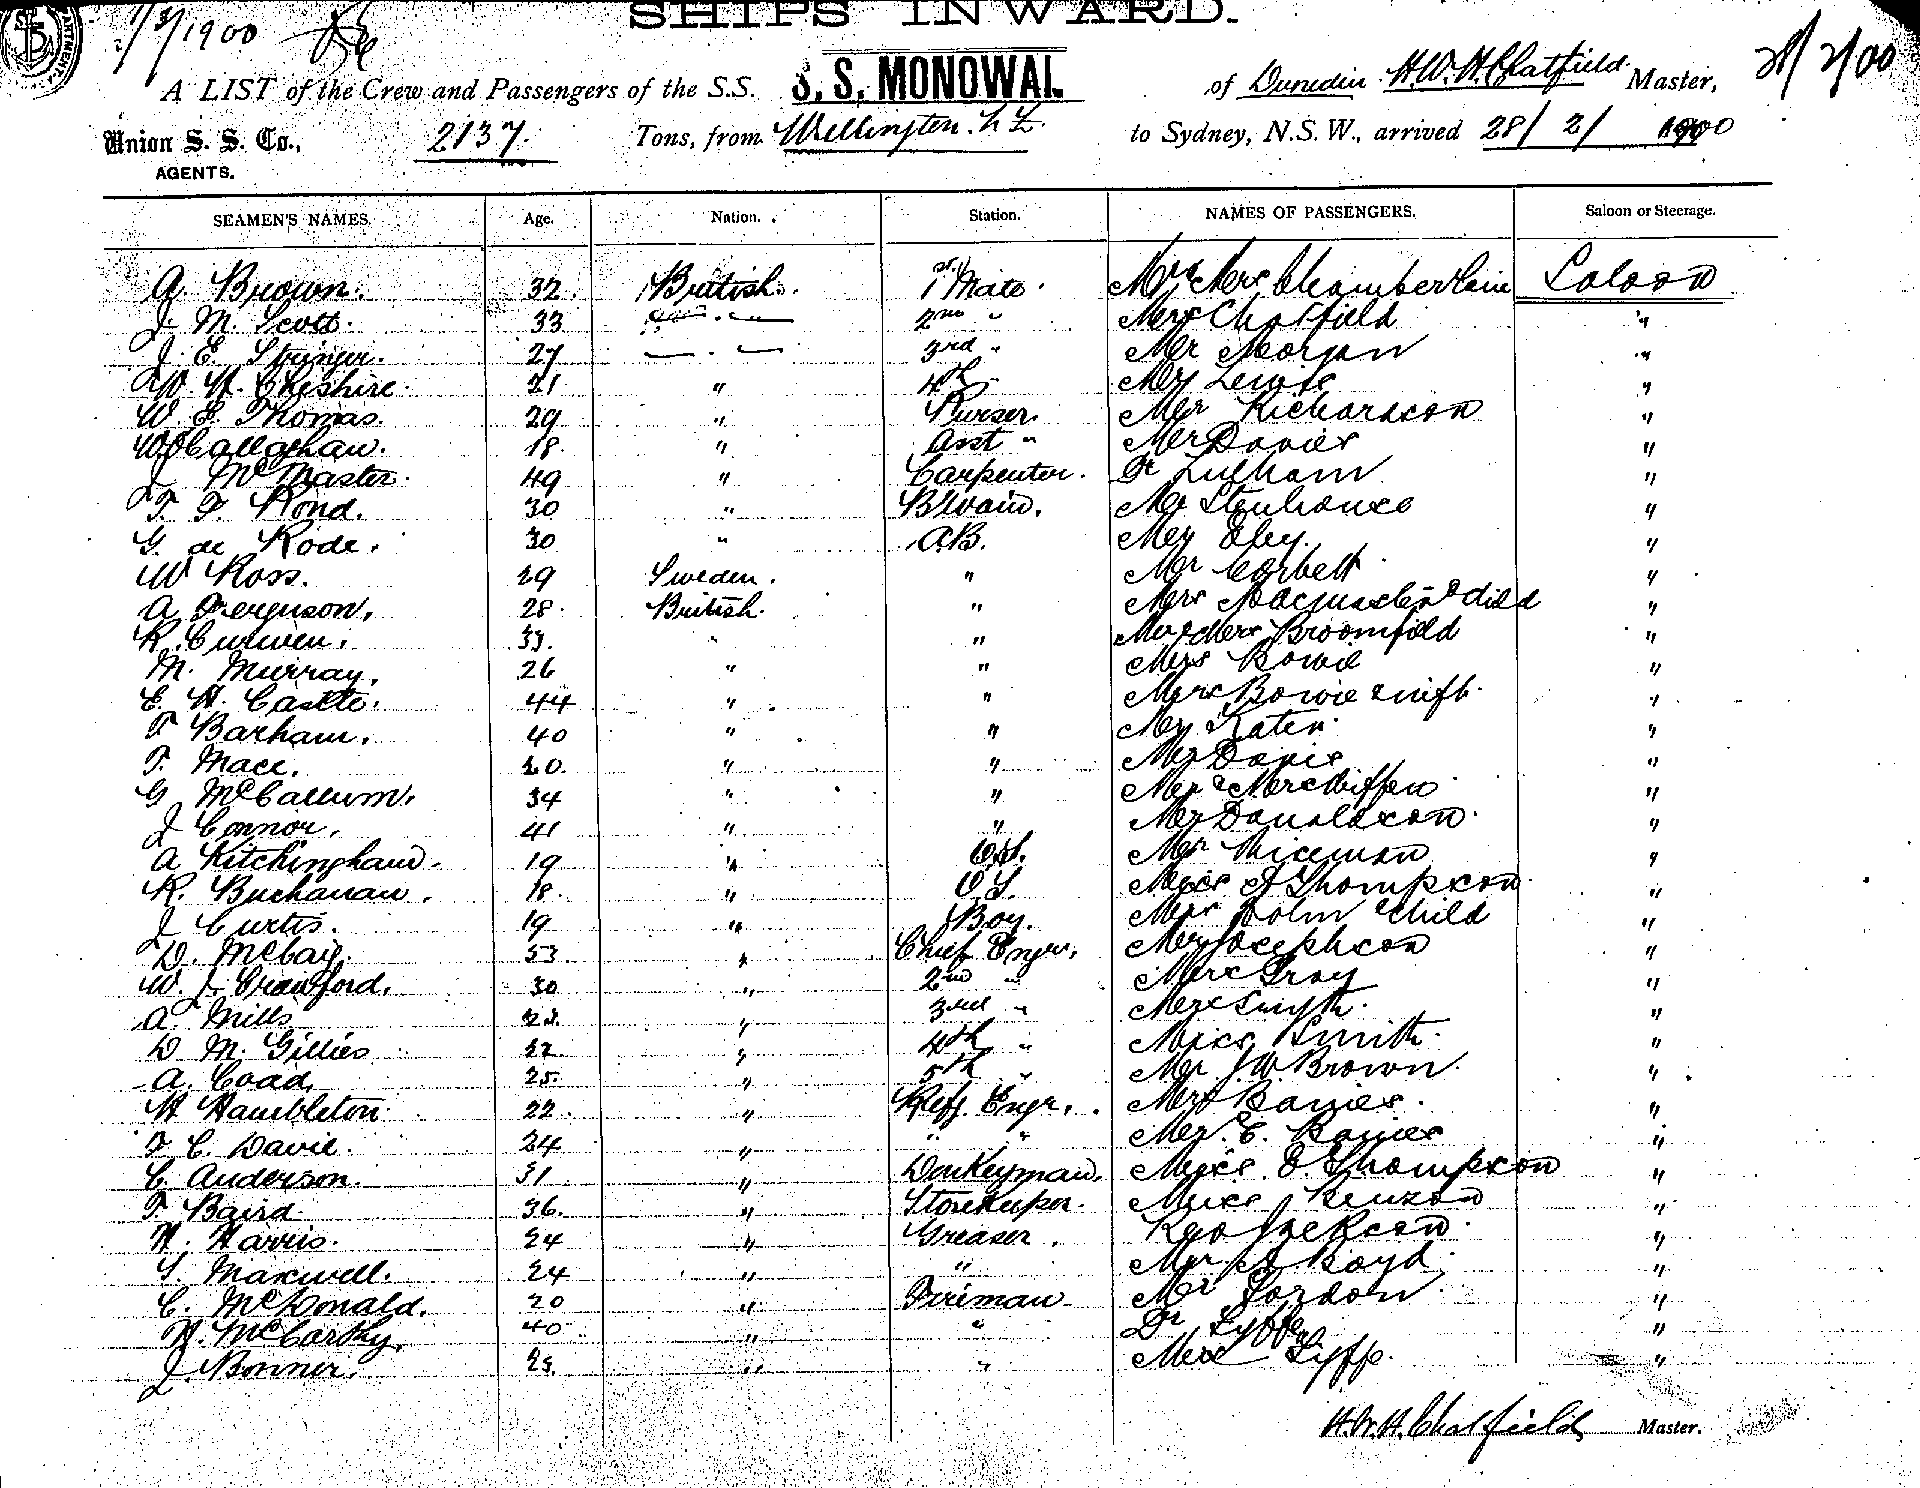 SHIPS INWARD.
1/3/1900
28/2/00
A LIST of the Crew and Passengers of the S.S. S. S. MONOWAI. of Dunedin H.W.H. Chatfield. Master,
Union S. S. Co., 2137. Tons, from Wellington. N Z. to Sydney, N.S.W., arrived 28/2/1900
AGENTS.
SEAMEN'S NAMES. Age. Nation. Station. NAMES OF PASSENGERS. Saloon or Steerage.
A. Brown. 32. British. 1st Mate. Mr & Mrs Chamberlain Saloon
J. M. Scott. 33 2nd " Mrs Chatfield "
J. E. Stringer. 27 3rd " Mr Morgan "
W. H. Cheshire. 21 " 4th " Mr Lewis "
W. E. Thomas. 29 " Purser. Mr Richardson "
W. Callaghan. 18. " Asst " Mr Davies "
J. McMaster. 49 " Carpenter. Dr "
T. F. Rond. 30 " BSwain. Mr Stenhouse "
G. de Rode. 30 " A.B. Mr Eley. "
W Ross. 29 Sweden. " Mr Corbett "
A. Ferguson. 28. British. " Mrs & child "
R. Curwen. 33. " " Mr & Mrs Broomfield "
M. Murray. 26 " " Mrs Bowie "
E. H. Castle. 44 " " Mrs Bowie & inft. "
T Barham. 40 " " Mr Kater. "
T. Mace. 20. " " Mr Davis "
G McCallum. 34 " " Mr & Mrs Miffen "
J Connor. 41 " " Mr Donaldson. "
A Kitchingham. 19 " O.S. Mr Wiseman "
R. Buchanan. 18. " O.S. Miss A Thompson. "
J Curtis. 19 " Boy. Mrs Holm & child "
D. McCaig. 53. " Chief Engr. Mr Josephson "
W. J. Crawford. 30 " 2nd " Mrs Gray "
A. Mills " 3rd " Mrs Smyth. "
D M. Gillies " 4th " Miss Smith. "
A. Coad. 25. " 5th " Mr J.W. Brown. "
H Hambleton. 22. " Reff. Engr. "
F C. David. 24 " " " Mr. C. "
C Anderson. 31 " Donkeyman. Miss E. Thompson "
T Baird. 36. " Storekeeper. Miss Benzon "
H. Harris. 24 " Greaser. Rev Jackson. "
S. Maxwell. 24 " " Mr A Boyd. "
C. McDonald. 20 " Fireman Mr Gordon. "
H. McCarthy. 40 " " Dr Fyffe "
J. Bonner. 23. " " Mrs Fyffe. "
H.W.H. Chatfield Master.